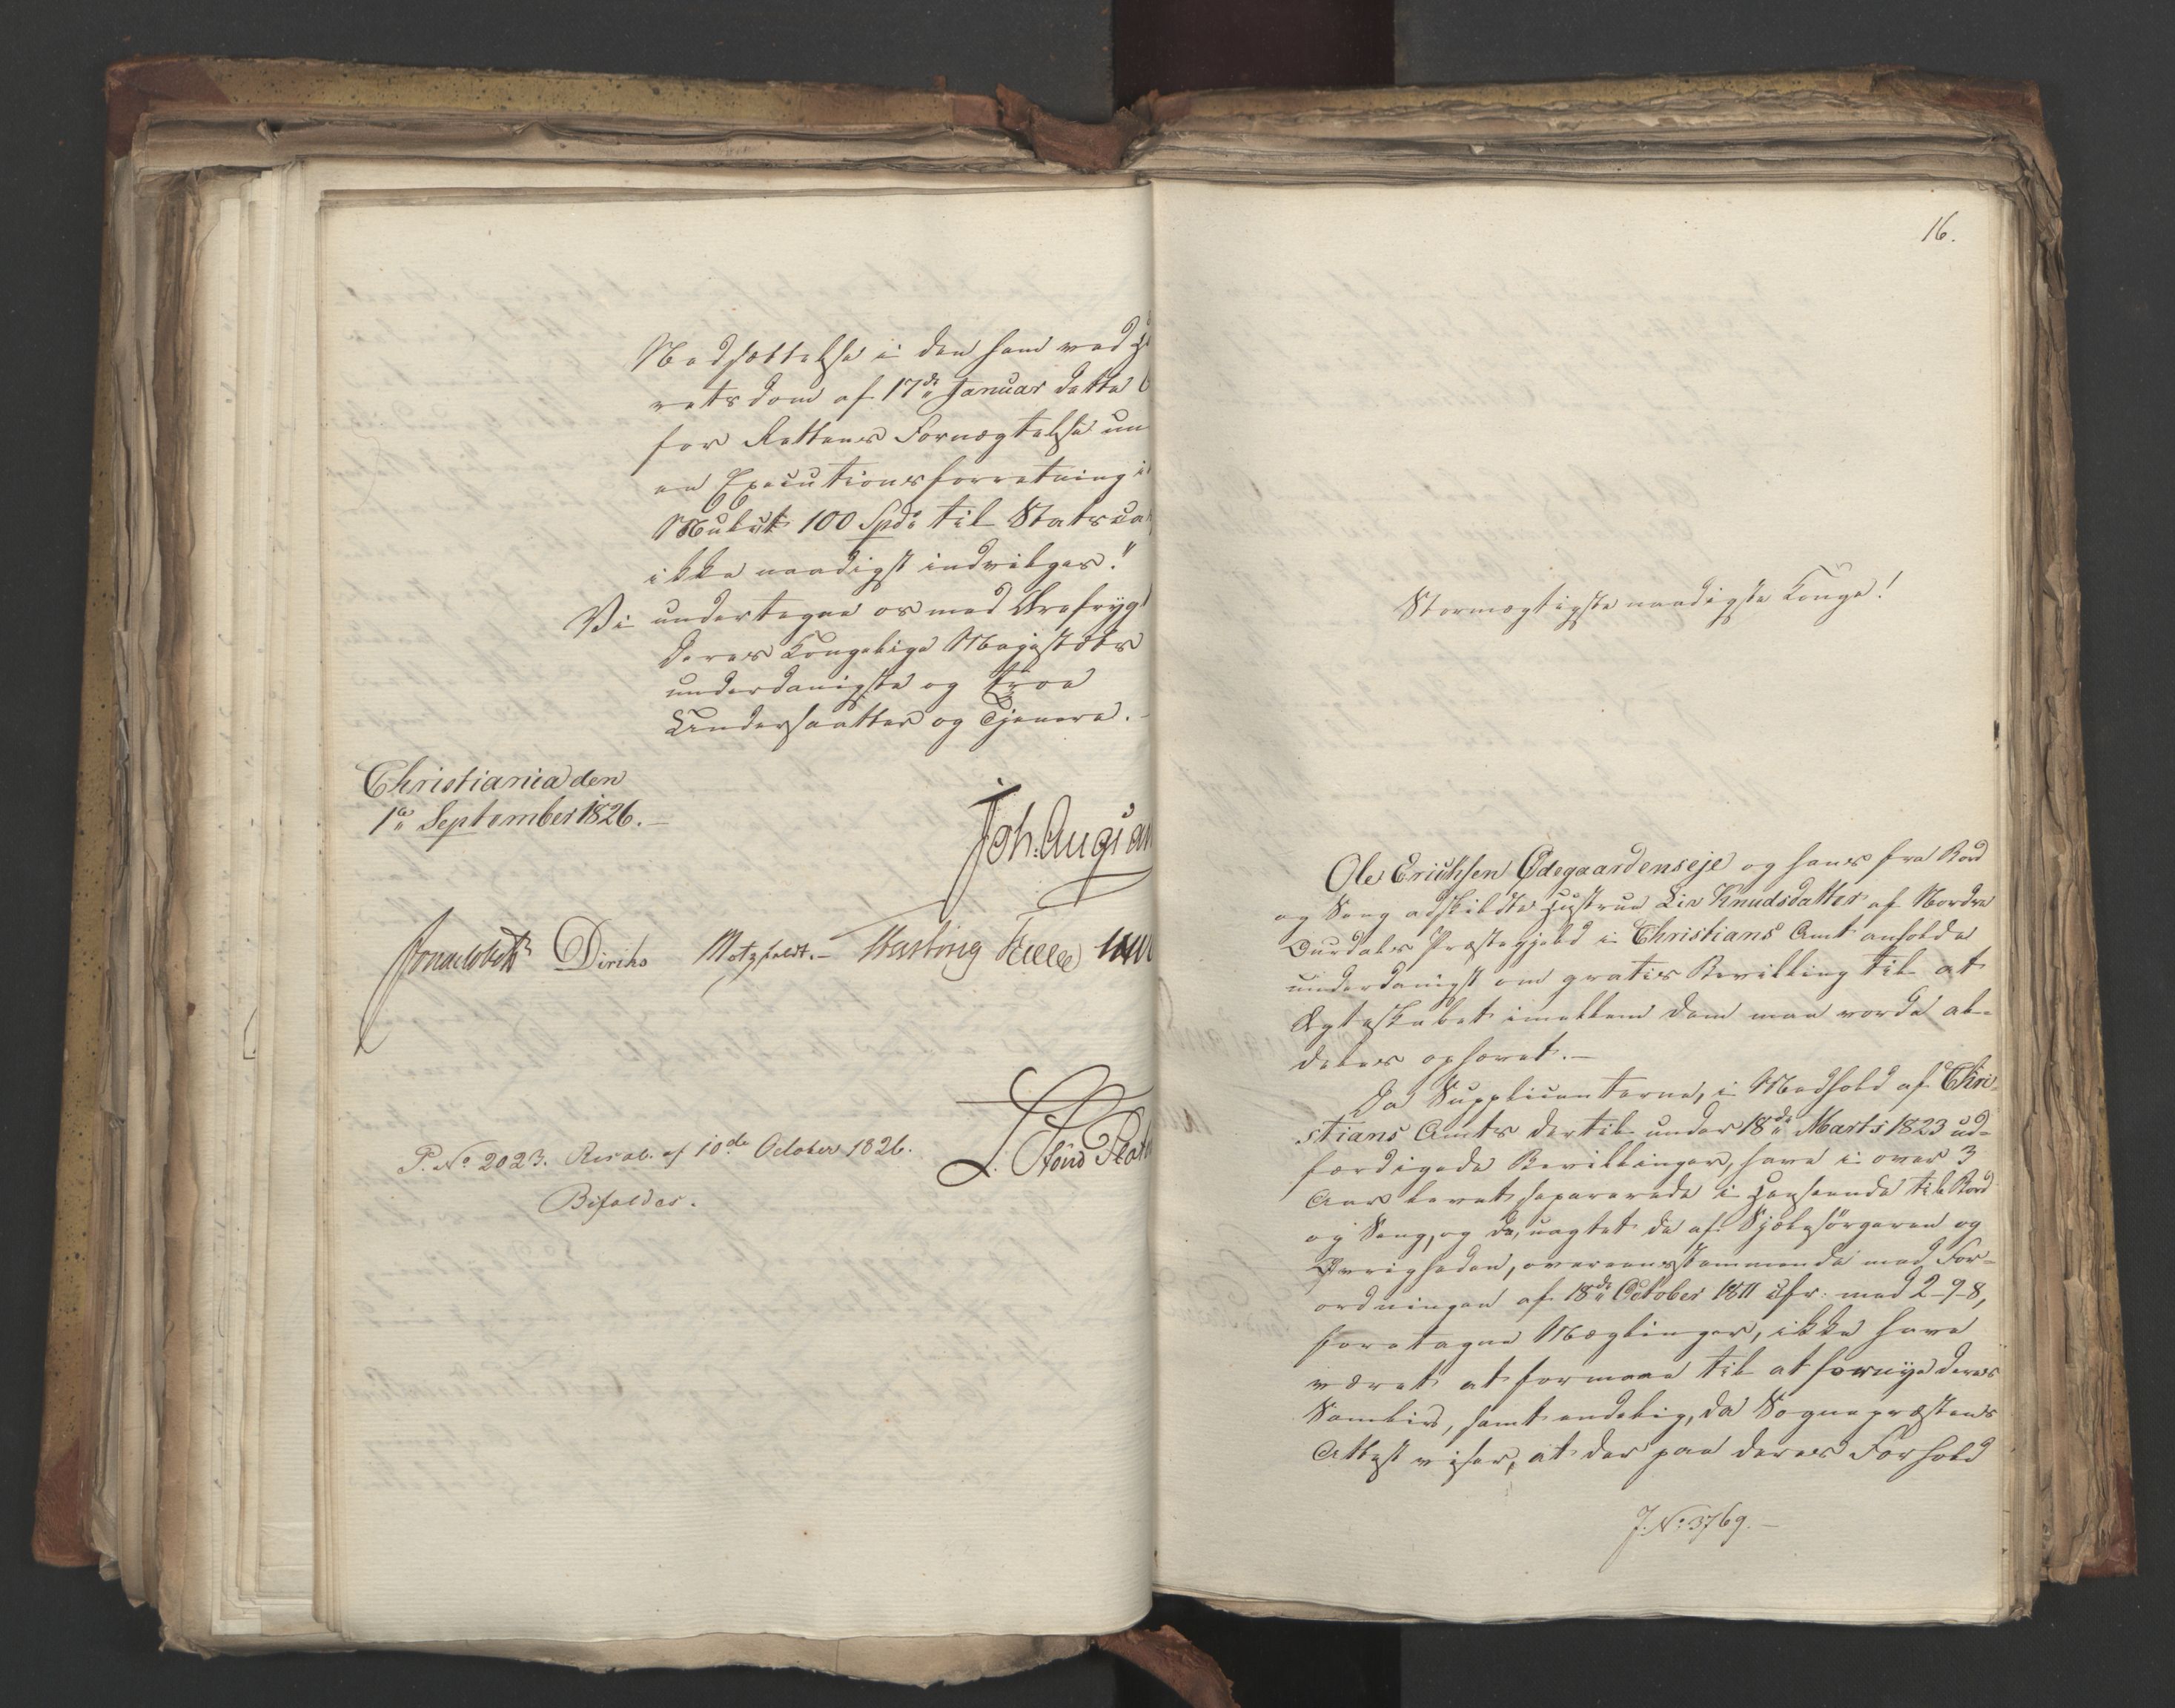 Nedsættelse i den ham ved
retsdom af 17de Januar dette
for Rettens Fornægtelse un
en Executionsforretning i
Mulct 100 Spd: til Statsca
ikke naadigst indvilges."
Vi undertegne os med Ærefrygt
Deres Kongelige Majestæts
underdanigste og troe
Undersaatter og Tjenere.
Christiania den
1ste September 1826.
Joh. Aug:
Diriks Motzfeldt.
P. No 2023. Resol. af 10de October 1826.
Bifaldes.
16.
Stormægtigste naadigste Konge!
Ole Erichsen Ødegaardenseje og hans fra Bord
og Seng adskildte Hustrue Liv Knudsdatter af Nordre
Ourdals Præstegjeld i Christians Amt anholde
underdanigst om gratis Bevilling til at
Ægteskabet imellem dem maa vorde al-
deles ophævet.
Da Supplicanterne, i Medhold af Chri-
stians Amts dertil under 18de Marts 1823 ud-
færdigede Bevillinger, have i over 3
Aar levet separerede i Henseende til Bord
og Seng, og da, uagtet de af Sjælesørgeren og
Øvrigheden, overeensstemmende med For-
ordningen af 18de October 1811 cfr. med 2-9-8,
foretagne Mæglinger, ikke have
været at formaae til at fornye deres
Samliv, samt endelig, da Sognepræstens
Attest viser, at der paa deres Forhold
J. No 3769.